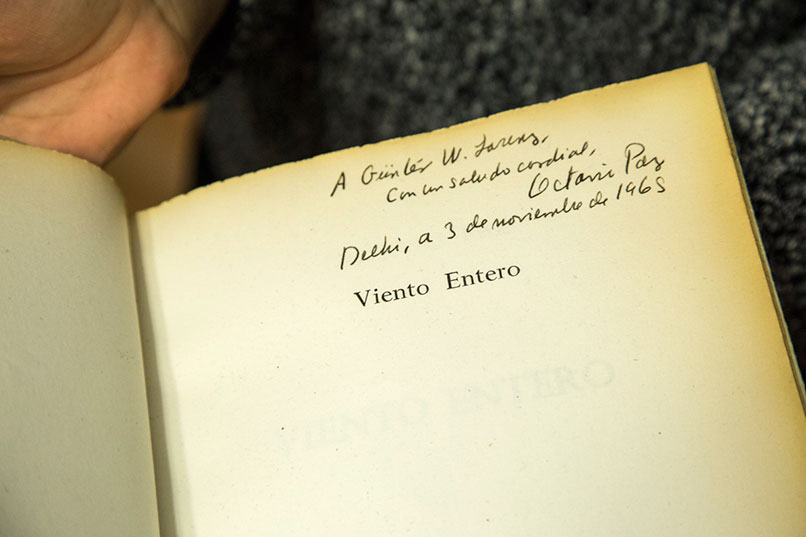 A Günter W. Lorenz,
con un saludo cordial,
Octavio Paz
Delhi, a 3 de noviembre de 1965
Viento Entero
VIENTO ENTERO